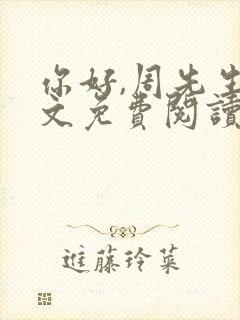 你好,周先生
文免费阅读
进藤玲菜